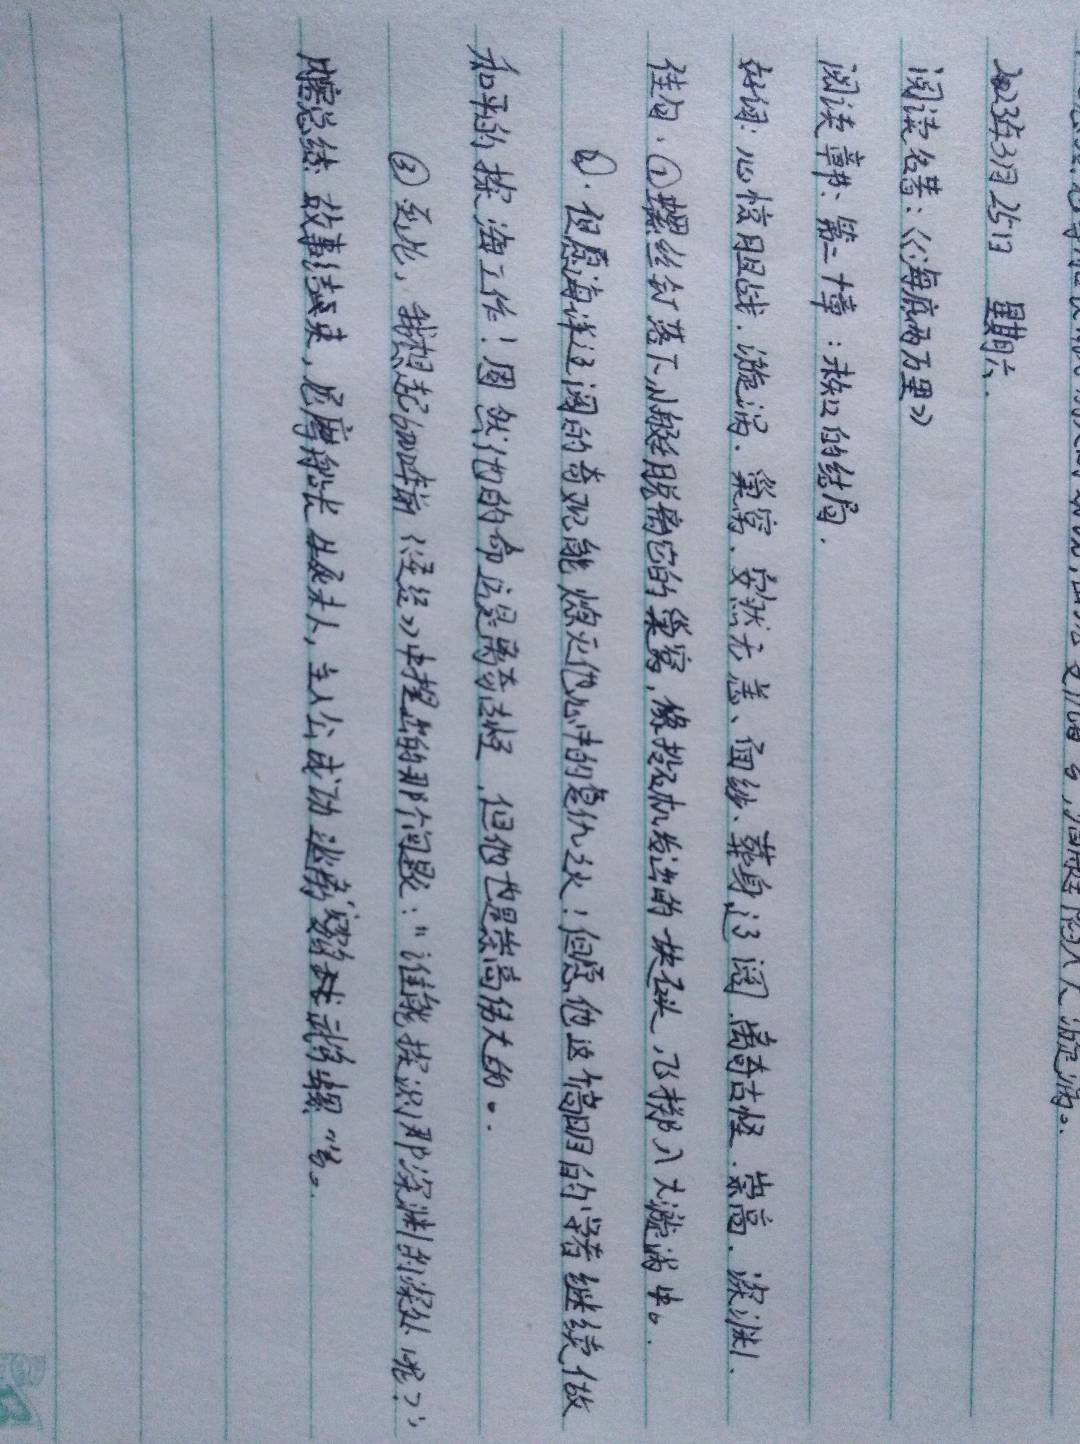 2023年3月25日 星期六.
阅读名著：《海底两万里》
阅读章节：第二十章：未知的结局.
好词：心惊胆战、漩涡、巢窝、安然无恙、面纱、葬身、辽阔、离奇古怪、崇高、深渊.
佳句：①螺丝钉落下，小艇脱离它的巢窝，像投石机发出的一块石头，飞掷入大漩涡中。
②.但愿海洋辽阔的奇观能熄灭他心中的复仇之火！但愿他这个高明的学者继续做
和平的探海工作！固然他的命运是离奇古怪，但他也是崇高伟大的。
③至此，我想起6000年前《圣经》中提出的那个问题："谁能探识那深渊的深处呢？"
内容总结：故事结束，尼摩船长生死未卜，主人公成功逃离"鹦鹉螺"号。